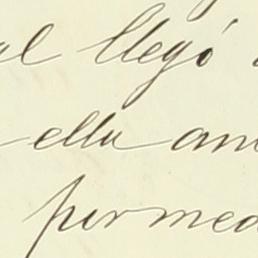 al llegó
ella am
por med